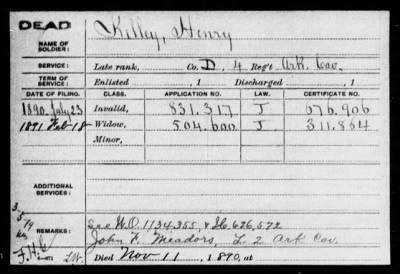 DEAD
NAME OF SOLDIER: Kelley, Henry
SERVICE: Late rank, Co. D, 4 Reg't Ark. Cav.
TERM OF SERVICE: Enlisted , 1 Discharged , 1
DATE OF FILING. CLASS. APPLICATION NO. LAW. CERTIFICATE NO.
1890. July 23 Invalid, 831.317 J 676.906
1891 Feb 18 Widow, 504.600 J. 311.864
Minor,
ADDITIONAL SERVICES:
REMARKS: See W.O. 1134.355, & 626,572
John F. Meadors, L 2 Ark Cav.
Died Nov 11, 1890, at